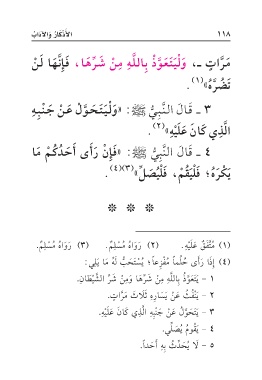 ١١٨ الأَذْكَارُ وَالآدَابُ
مَرَّاتٍ ـ، وَلْيَتَعَوَّذْ بِاللَّهِ مِنْ شَرِّهَا، فَإِنَّهَا لَنْ
تَضُرَّهُ»(١).
٣ ـ قَالَ النَّبِيُّ ﷺ: «وَلْيَتَحَوَّلْ عَنْ جَنْبِهِ
الَّذِي كَانَ عَلَيْهِ»(٢).
٤ ـ قَالَ النَّبِيُّ ﷺ: «فَإِنْ رَأَى أَحَدُكُمْ مَا
يَكْرَهُ؛ فَلْيَقُمْ، فَلْيُصَلِّ»(٣)(٤).
* * *
(١) مُتَّفَقٌ عَلَيْهِ. (٢) رَوَاهُ مُسْلِمٌ. (٣) رَوَاهُ مُسْلِمٌ.
(٤) إِذَا رَأَى حُلْماً مُفْزِعاً؛ يُسْتَحَبُّ لَهُ مَا يَلِي:
١ - يَتَعَوَّذُ بِاللَّهِ مِنْ شَرِّهَا وَمِنْ شَرِّ الشَّيْطَانِ.
٢ - يَنْفُثُ عَنْ يَسَارِهِ ثَلَاثَ مَرَّاتٍ.
٣ - يَتَحَوَّلُ عَنْ جَنْبِهِ الَّذِي كَانَ عَلَيْهِ.
٤ - يَقُومُ يُصَلِّي.
٥ - لَا يُحَدِّثُ بِهِ أَحَداً.